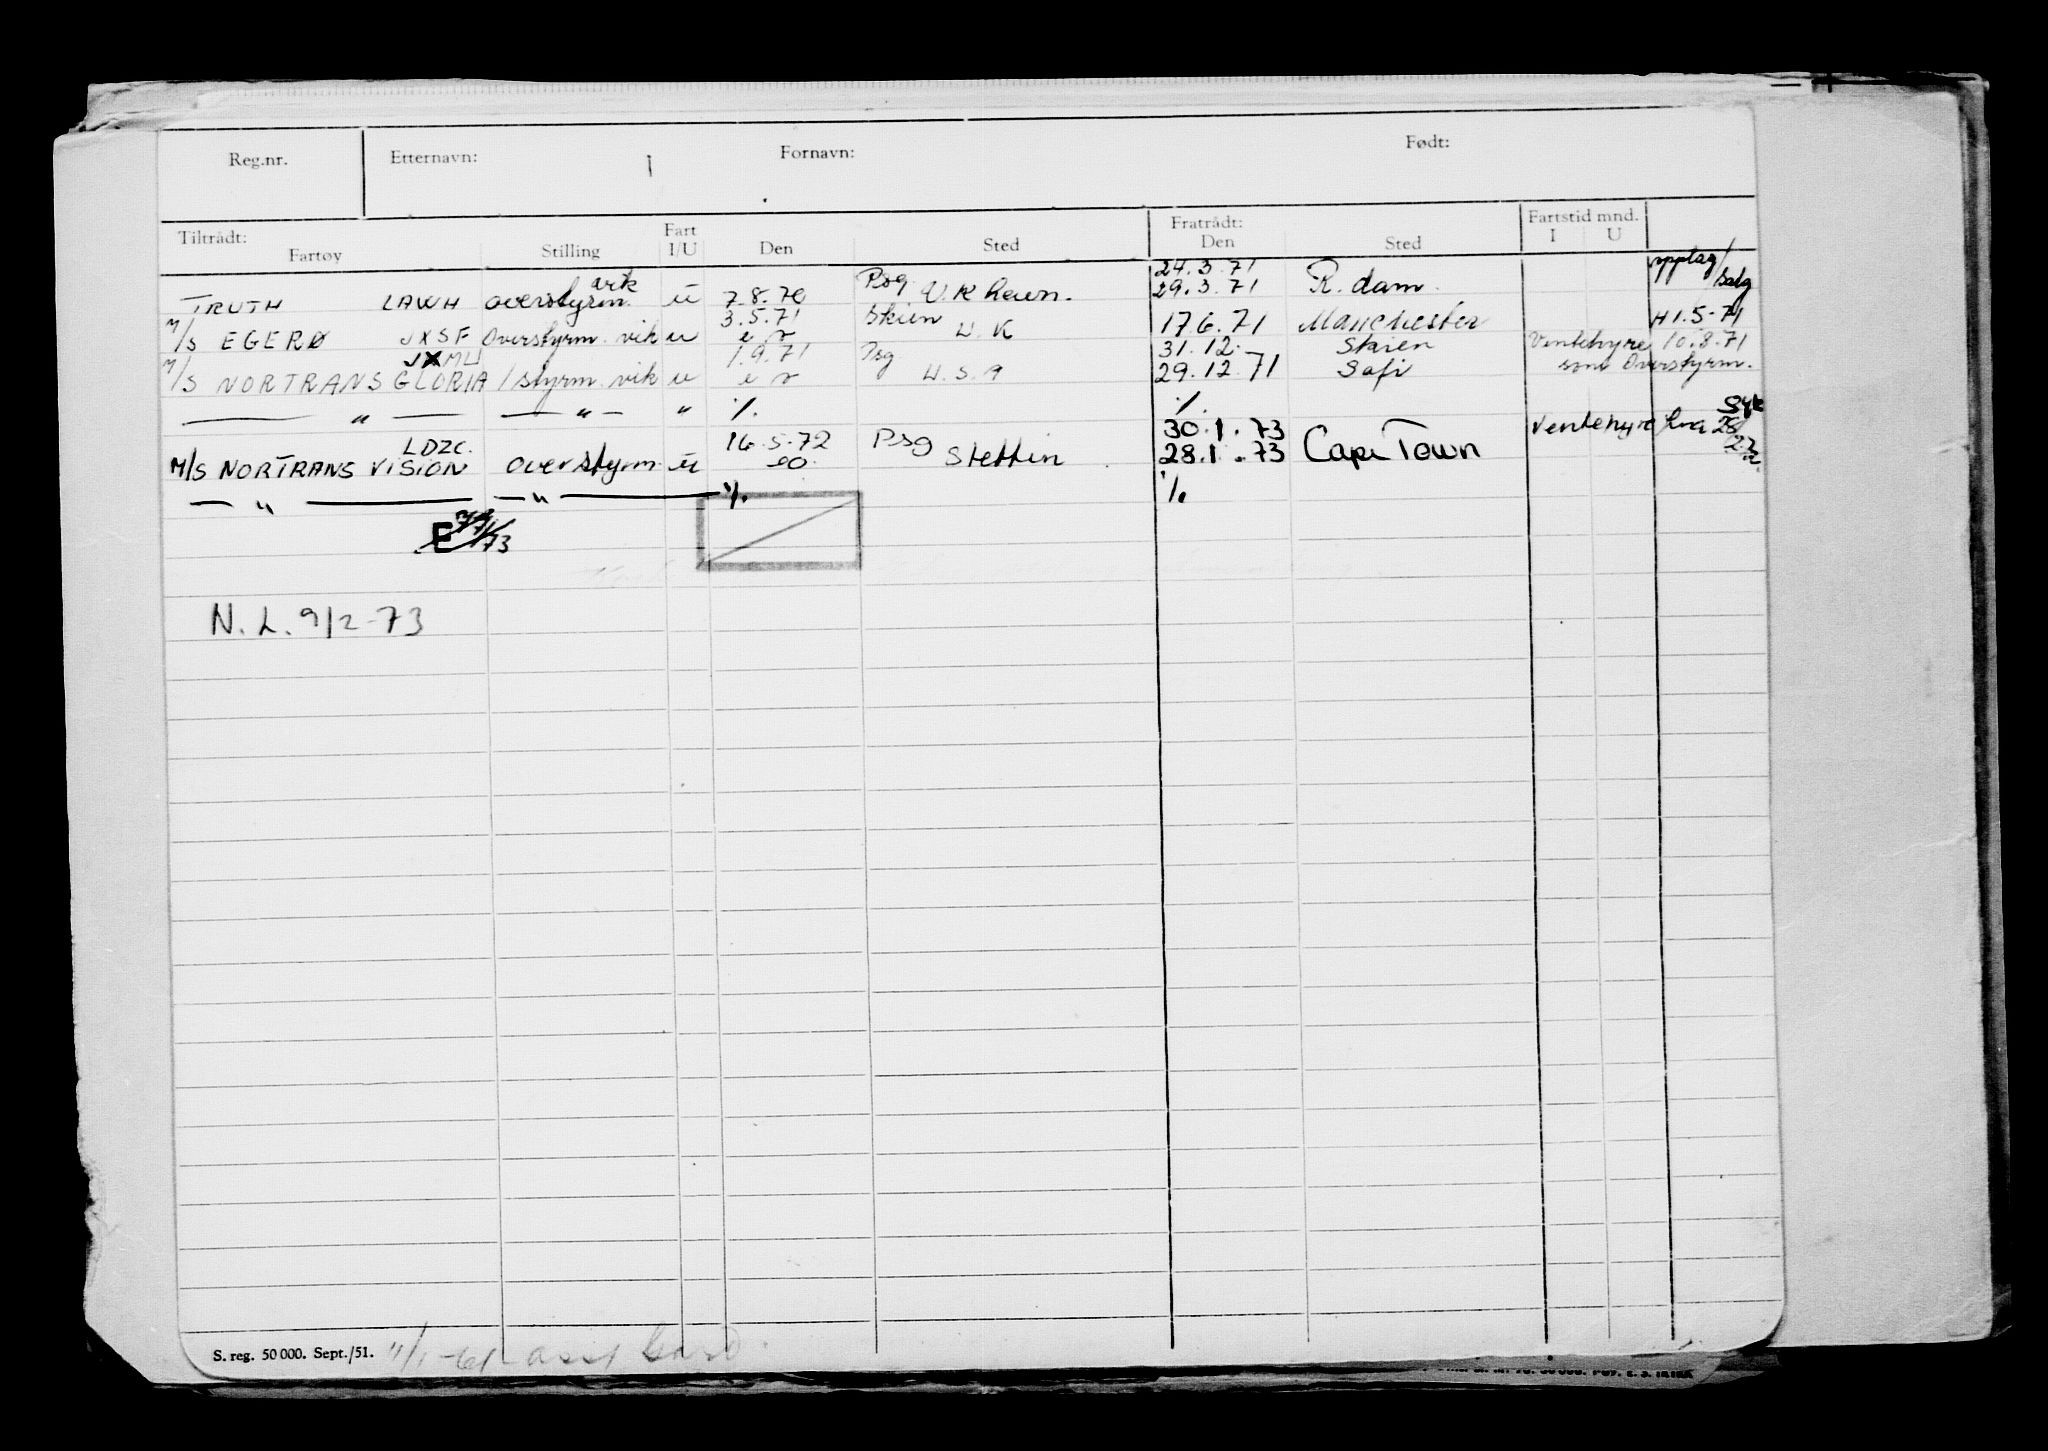 Reg.nr. Etternavn: Fornavn: Født:
Tiltrådt: Fartøy Stilling Fart I/U Den Sted Fratrådt: Den Sted Fartstid mnd. I U
24.3.71 opplag/
TRUTH LAWH overstyrm. vik u 7.8.70 Psg U.K havn. 29.3.71 R.dam. salg
3.5.71 Skien H 1.5-71
M/S EGERØ JXSF Overstyrm. vik u U.K 17.6.71 Manchester
JXMU 1.9.71 Psg 31.12. Skien Ventehyre 10.8.71
M/S NORTRANS GLORIA 1 styrm. vik u U.S.A 29.12.71 Safi som Overstyrm.
— " — — " — " ·/. ·/.
LDZC. 16.5.72 Psg 30.1.73 Ventehyre fra 28/ Syk
M/S NORTRANS VISION overstyrm. u do. Stettin 28.1.73 Cape Town
— " — — " — ·/. ·/.
E /73
N.L. 9/2-73
S. reg. 50 000. Sept./51.